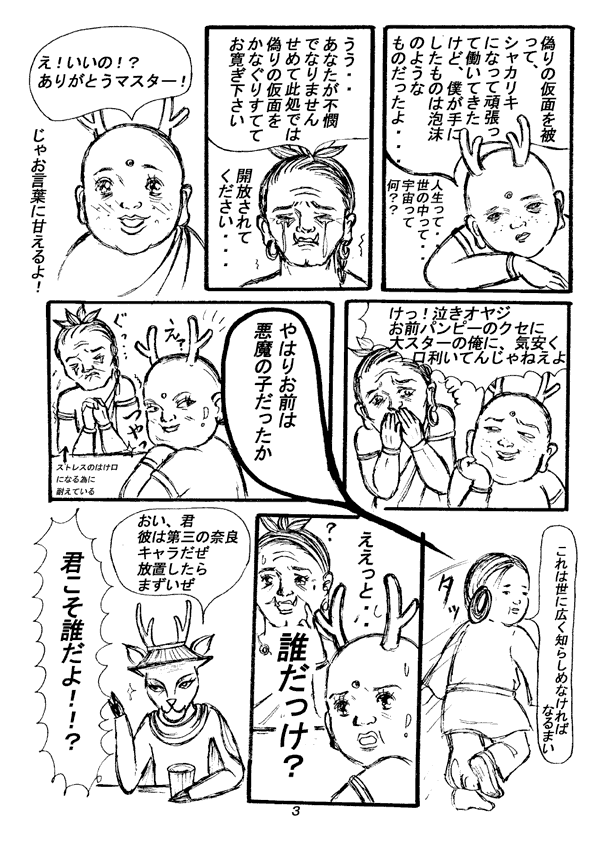 偽りの仮面を被
って、
シャカリキ
になって頑張っ
て働いてきた
けど、僕が手に
したものは泡沫
のような
ものだったよ・・・
人生って・・
世の中って・・
宇宙って
何??
うう・・
あなたが不憫
でなりません
せめて此処では
偽りの仮面を
かなぐりすてて
お寛ぎ下さい
開放されて
ください・・・
え!いいの!?
ありがとうマスター!
じゃお言葉に甘えるよ!
けっ!泣きオヤジ
お前パンピーのクセに
大スターの俺に、気安く
口利いてんじゃねえよ
やはりお前は
悪魔の子だったか
ぐっ・・
えっ?
つやっ
ストレスのはけ口
になる為に
耐えている
これは世に広く知らしめなければ
なるまい
タッ
?
ええっと・・
誰だっけ?
おい、君
彼は第三の奈良
キャラだぜ
放置したら
まずいぜ
君こそ誰だよ!!?
3